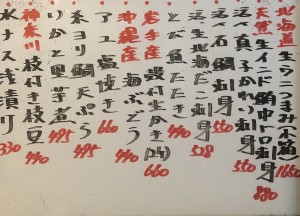 北海道 生ウニつまみ(小箱) 1650
天然 生インド鮪中トロ刺身 880
活〆真子かれい刺身 550
活〆生だこ刺身 528
とび魚たたき 440
岩手産 殻付生かき(2ケ) 660
沖縄産 海ぶどう 440
糸ヨリ鯛天ぷら 495
アユ塩焼き 660
いかと里芋煮 495
神奈川 枝付き枝豆 440
水ナス浅漬り 330